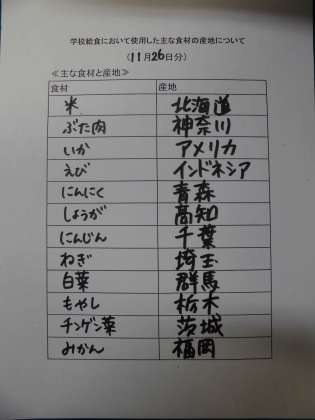 学校給食において使用した主な食材の産地について
(11月26日分)
≪主な食材と産地≫
食材 産地
米 北海道
ぶた肉 神奈川
いか アメリカ
えび インドネシア
にんにく 青森
しょうが 高知
にんじん 千葉
ねぎ 埼玉
白菜 群馬
もやし 栃木
チンゲン菜 茨城
みかん 福岡